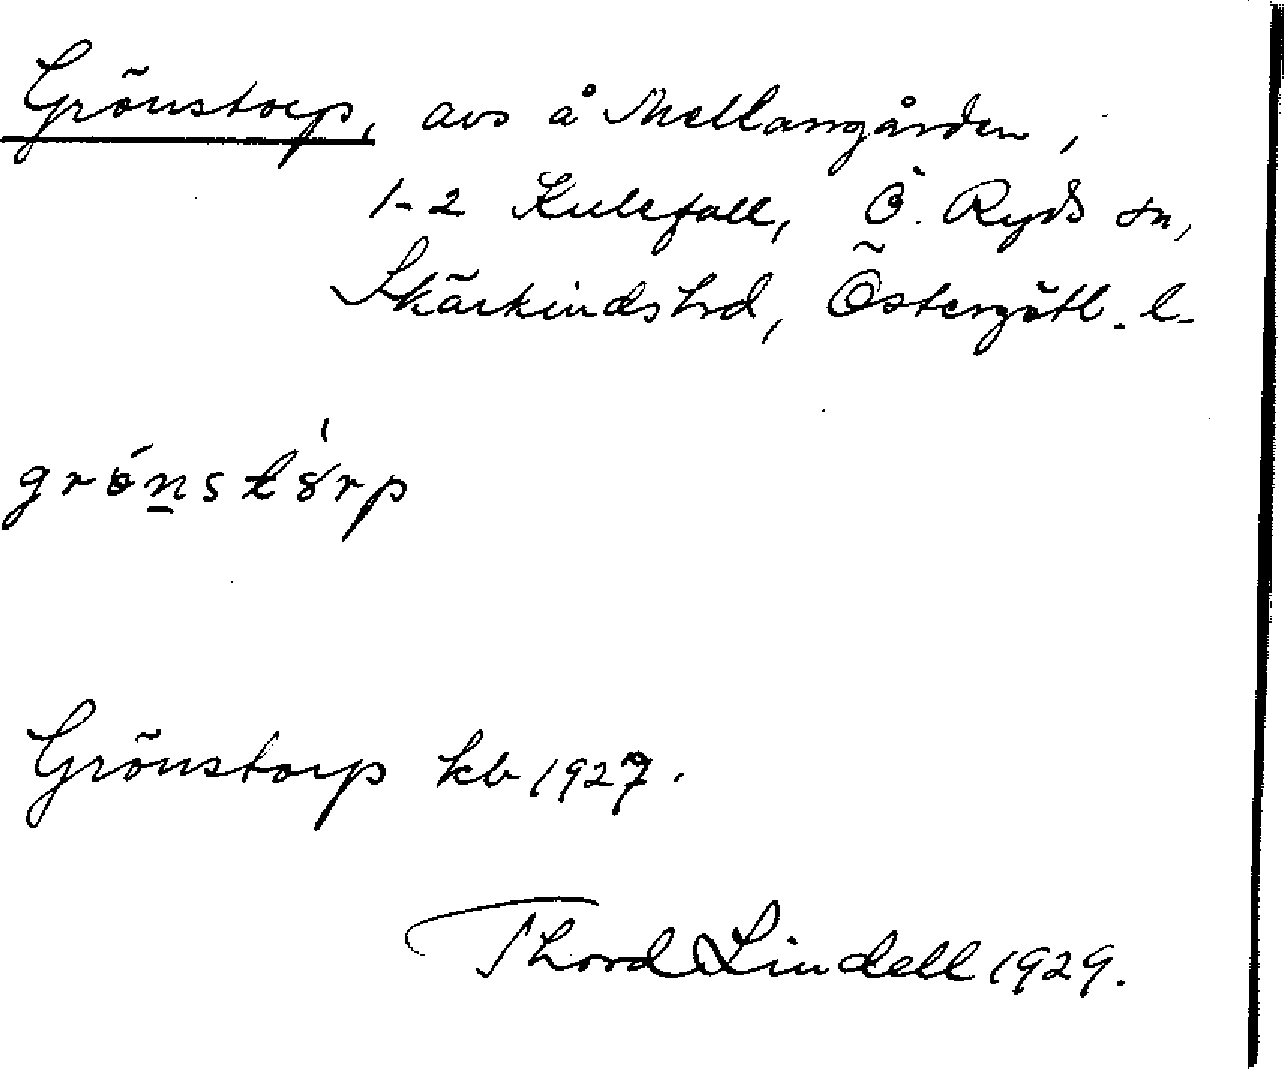 Grönstorp, avs å Mellangården,
1-2 Kulefall, Ö. Ryds sn,
Skärkinds hd, Östergötl. l.
grönstörp
Grönstorp kb 1927.
Thord Lindell 1929.